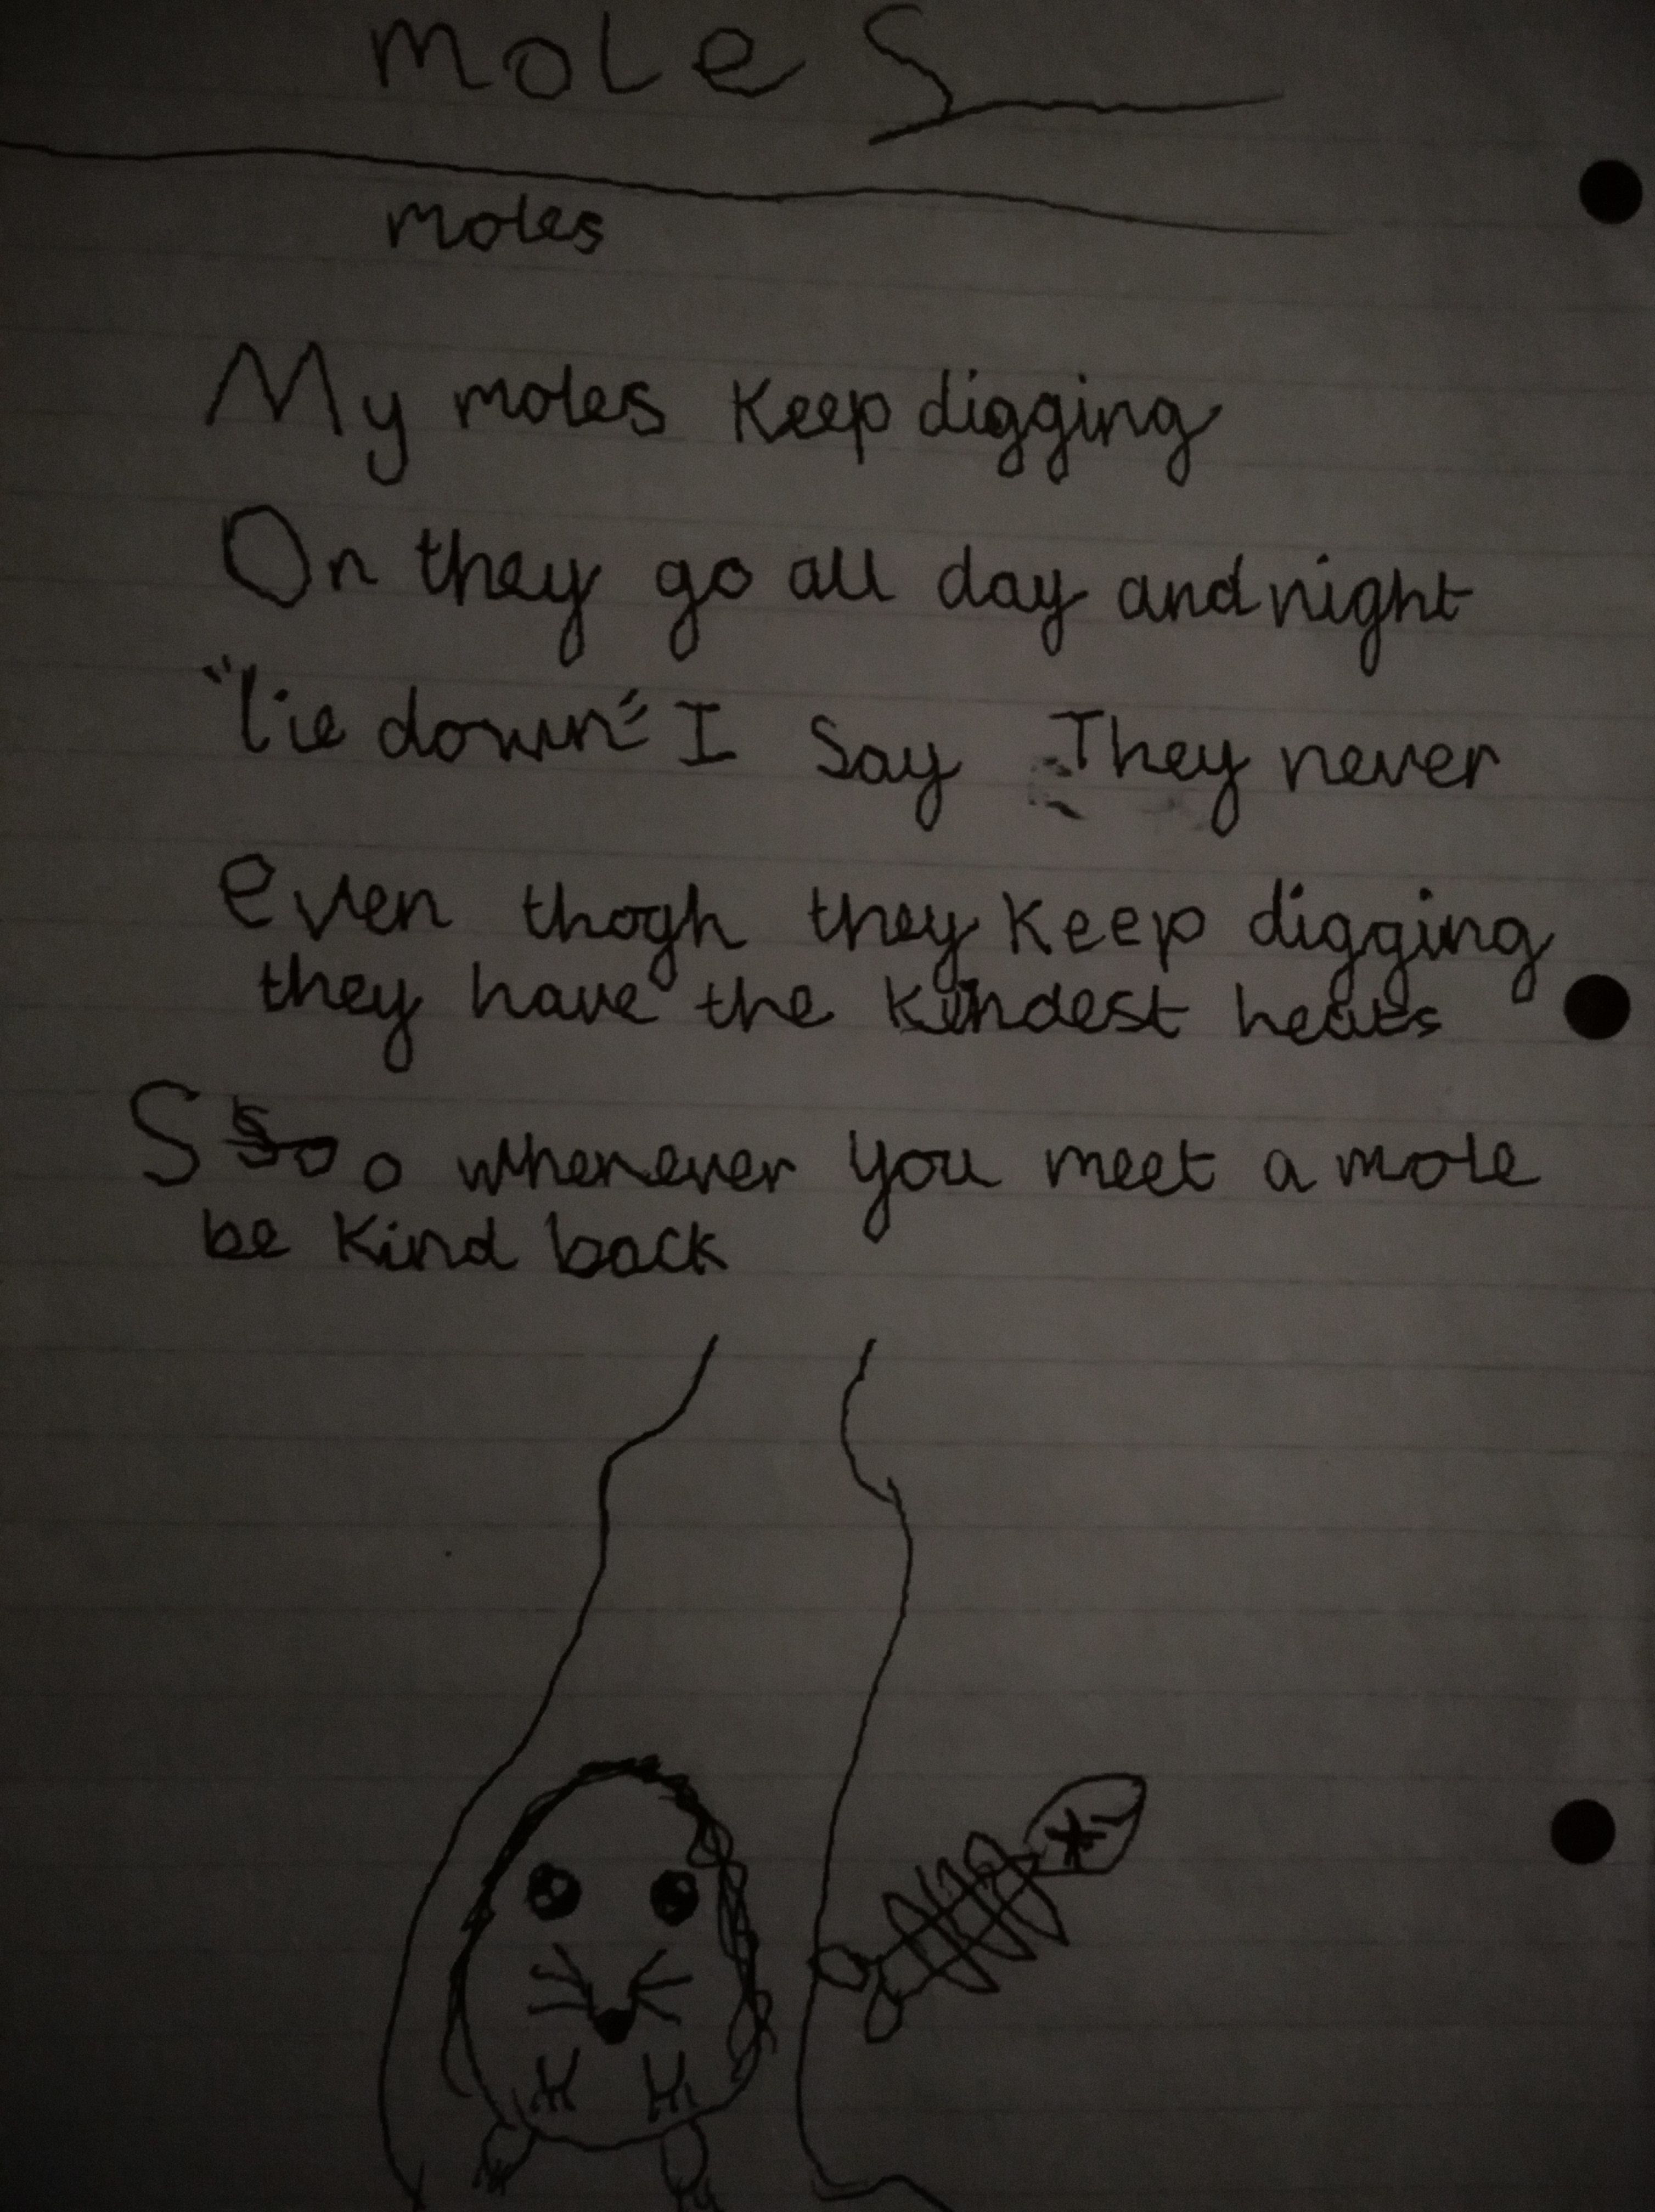 moles
moles
My moles keep digging
On they go all day and night
"lie down" I say They never
even thogh they keep digging
they have the kindest heats
S so o whenever you meet a mole
be kind back